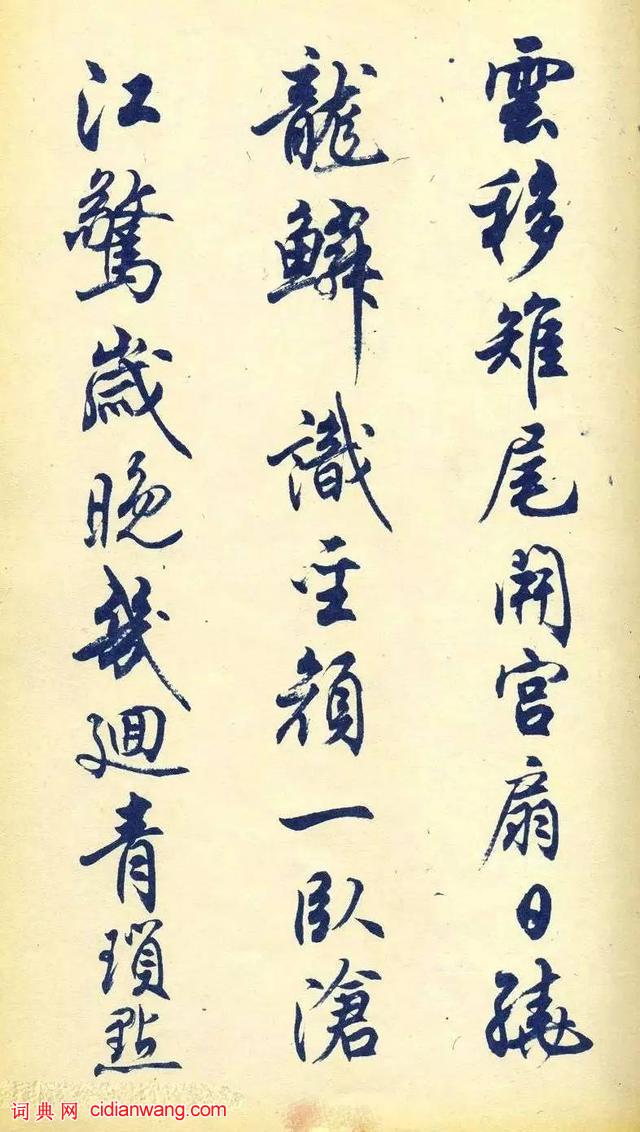 雲移雉尾開宮扇日繞
龍鱗識聖顏一臥滄
江驚歲晚幾迴青瑣點
词典网 cidianwang.com